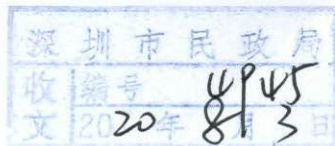 深圳市民政局
收文 编号 4945
2020年8月3日